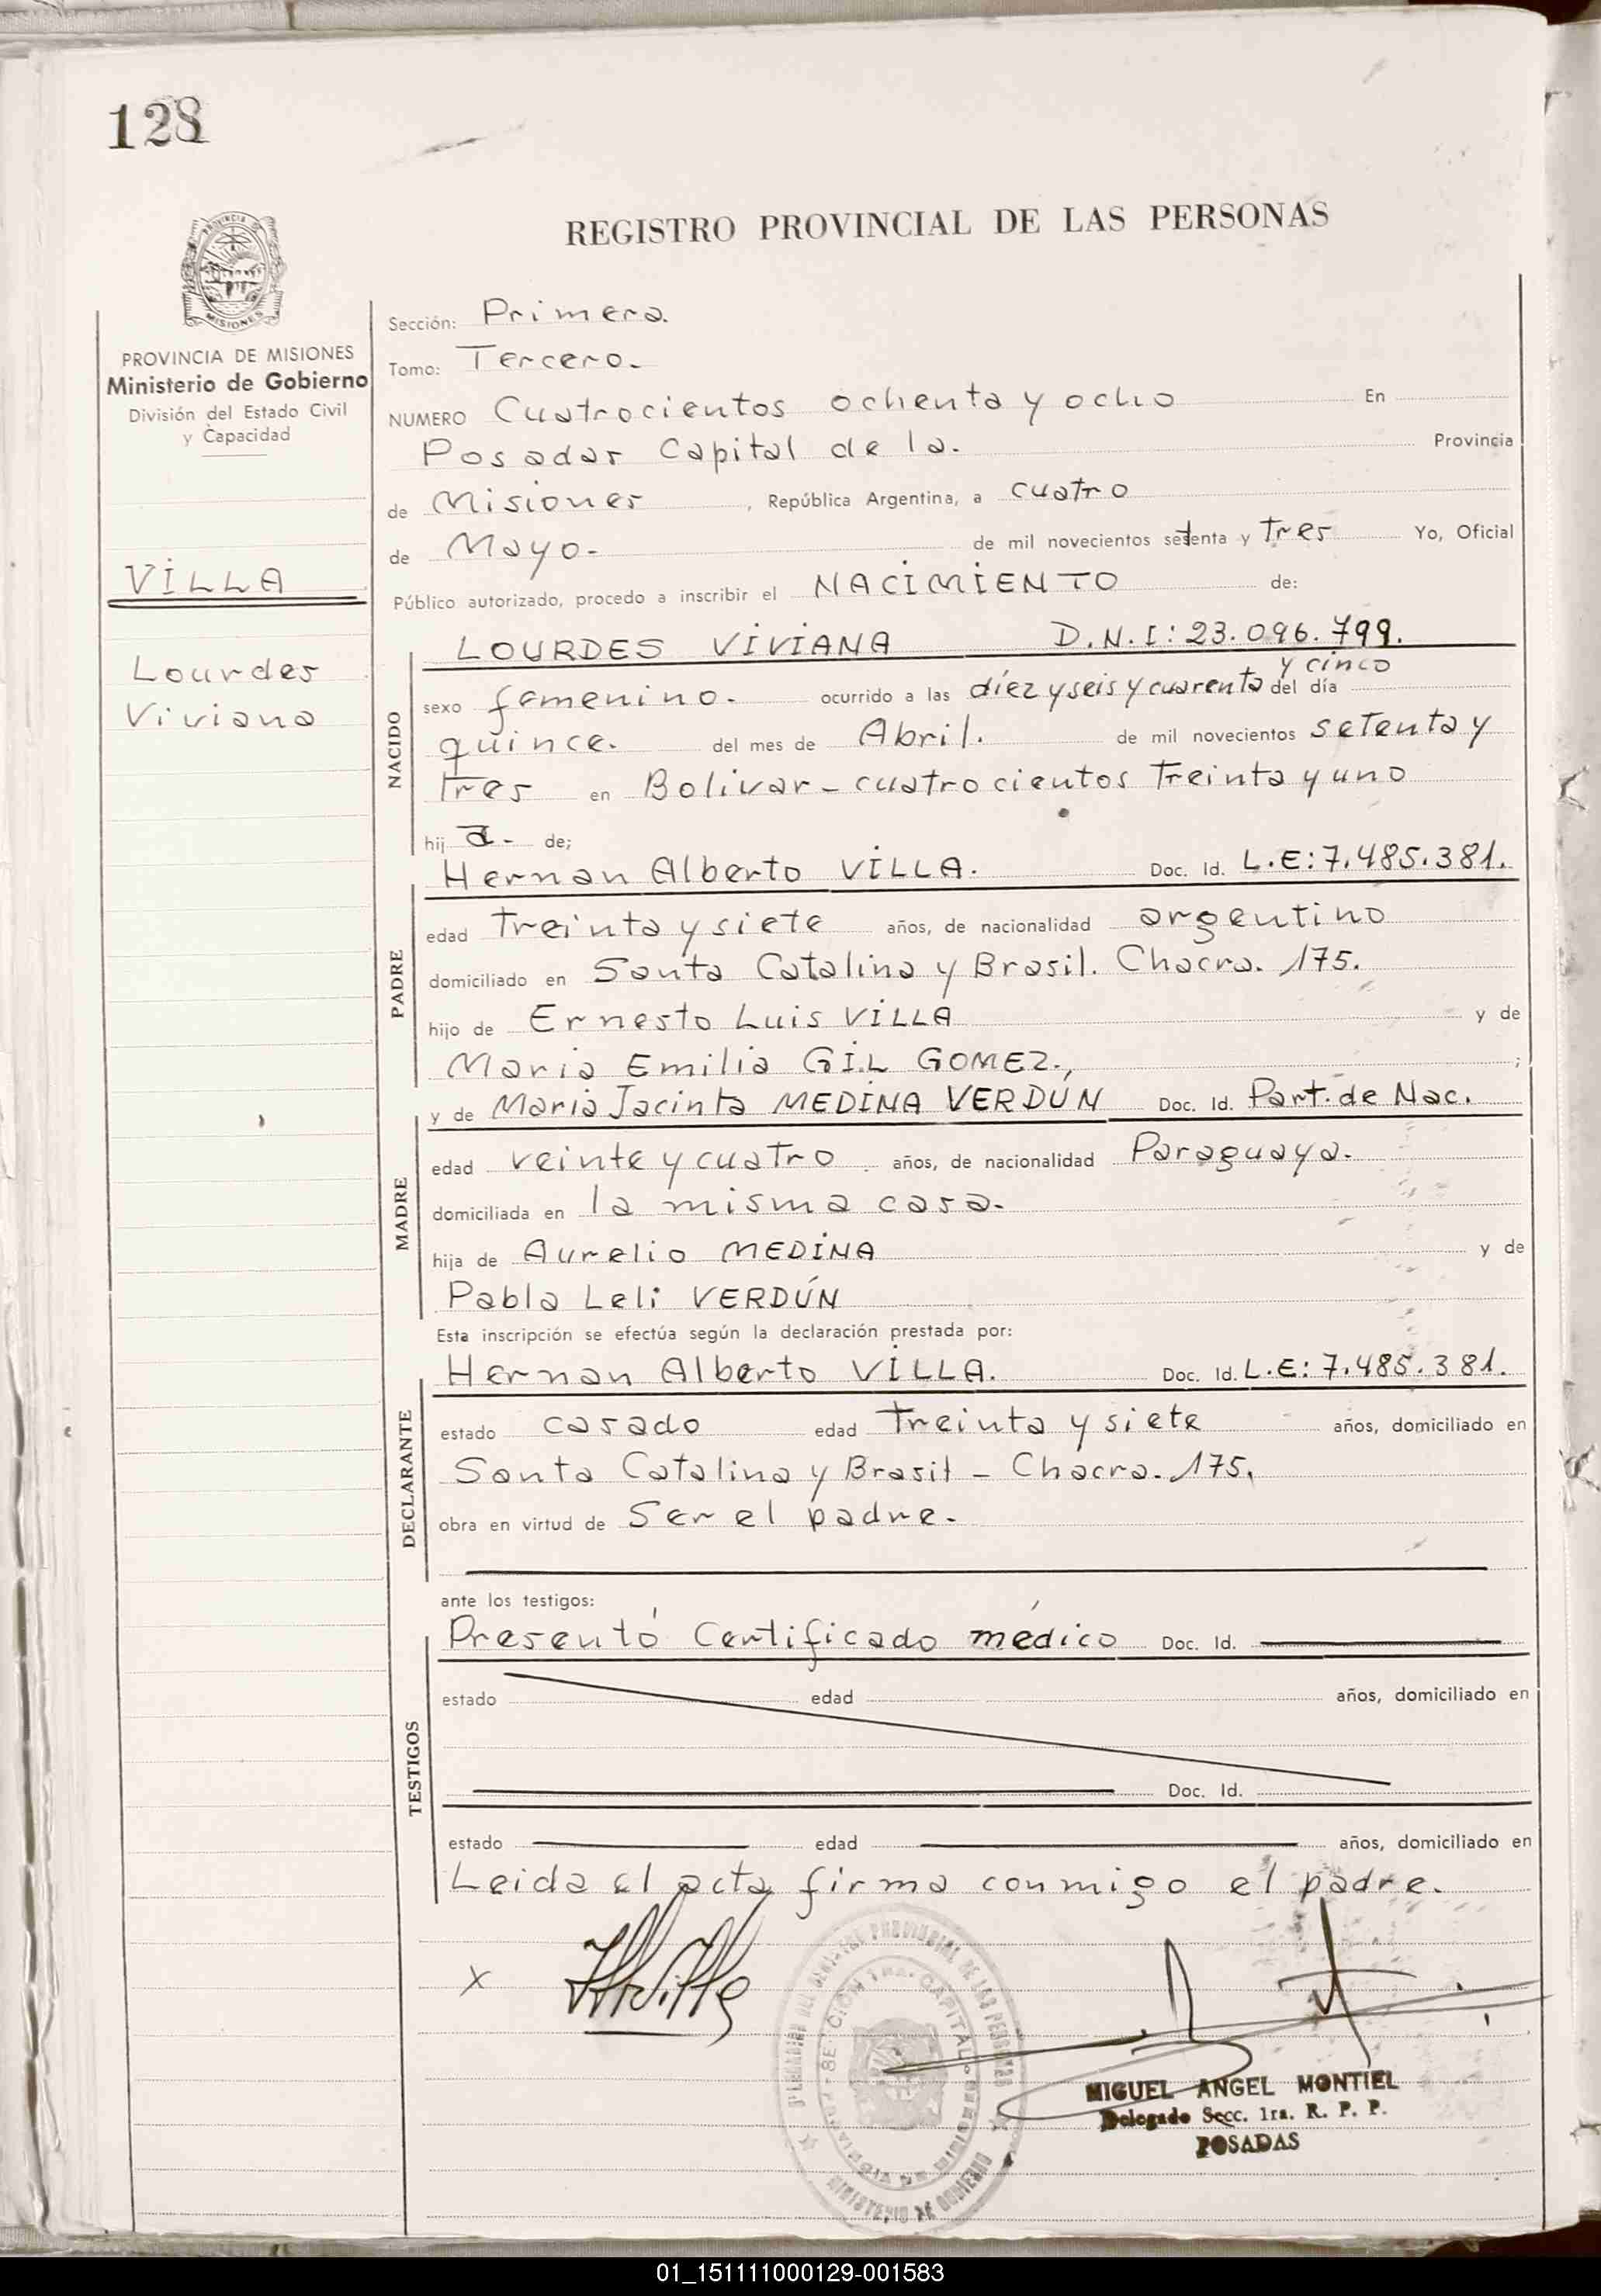 128
REGISTRO PROVINCIAL DE LAS PERSONAS
PROVINCIA
MISIONES
PROVINCIA DE MISIONES
Ministerio de Gobierno
División del Estado Civil
y Capacidad
VILLA
Lourdes
Viviana
Sección: Primera.
Tomo: Tercero.
NUMERO Cuatrocientos ochenta y ocho En
Posadas Capital de la. Provincia
de Misiones, República Argentina, a cuatro
de Mayo- de mil novecientos setenta y tres Yo, Oficial
Público autorizado, procedo a inscribir el NACIMIENTO de:
NACIDO
LOURDES VIVIANA D.N.I: 23.096.799.
y cinco
sexo femenino. ocurrido a las diez y seis y cuarenta del día
quince. del mes de Abril. de mil novecientos setenta y
tres en Bolivar - cuatrocientos treinta y uno
hij a. de;
PADRE
Hernan Alberto VILLA. Doc. Id. L.E: 7.485.381.
edad treinta y siete años, de nacionalidad argentino
domiciliado en Santa Catalina y Brasil. Chacra. 175.
hijo de Ernesto Luis VILLA y de
Maria Emilia GIL GOMEZ., ;
MADRE
y de Maria Jacinta MEDINA VERDÚN Doc. Id. Part. de Nac.
edad veinte y cuatro años, de nacionalidad Paraguaya.
domiciliada en la misma casa.
hija de Aurelio MEDINA y de
Pabla Leli VERDÚN
Esta inscripción se efectúa según la declaración prestada por:
DECLARANTE
Hernan Alberto VILLA. Doc. Id. L.E: 7.485.381.
estado casado edad treinta y siete años, domiciliado en
Santa Catalina y Brasil - Chacra. 175.
obra en virtud de Ser el padre.
ante los testigos:
TESTIGOS
Presentó Certificado médico Doc. Id.
estado edad años, domiciliado en
Doc. Id.
estado edad años, domiciliado en
Leida el acta firma conmigo el padre.
X
MIGUEL ANGEL MONTIEL
Delegado Secc. 1ra. R. P. P.
POSADAS
MINISTERIO DE GOBIERNO
01_151111000129-001583